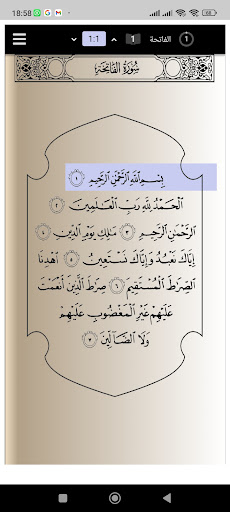 18:58 68
الفاتحة 1 1:1 1
سُورَةُ الفَاتِحَةِ
بِسْمِ ٱللَّهِ ٱلرَّحْمَٰنِ ٱلرَّحِيمِ ١
ٱلْحَمْدُ لِلَّهِ رَبِّ ٱلْعَٰلَمِينَ ٢
ٱلرَّحْمَٰنِ ٱلرَّحِيمِ ٣ مَٰلِكِ يَوْمِ ٱلدِّينِ ٤
إِيَّاكَ نَعْبُدُ وَإِيَّاكَ نَسْتَعِينُ ٥ ٱهْدِنَا
ٱلصِّرَٰطَ ٱلْمُسْتَقِيمَ ٦ صِرَٰطَ ٱلَّذِينَ أَنْعَمْتَ
عَلَيْهِمْ غَيْرِ ٱلْمَغْضُوبِ عَلَيْهِمْ
وَلَا ٱلضَّآلِّينَ ٧